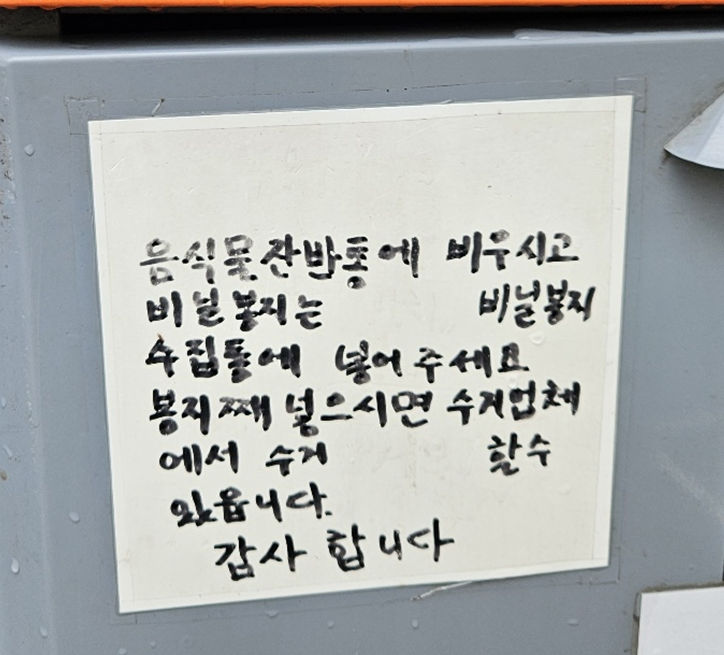 음식물잔반통에 비우시고
비닐봉지는 비닐봉지
수집통에 넣어 주세요
봉지째 넣으시면 수거업체
에서 수거 할수
있읍니다.
감사 합니다